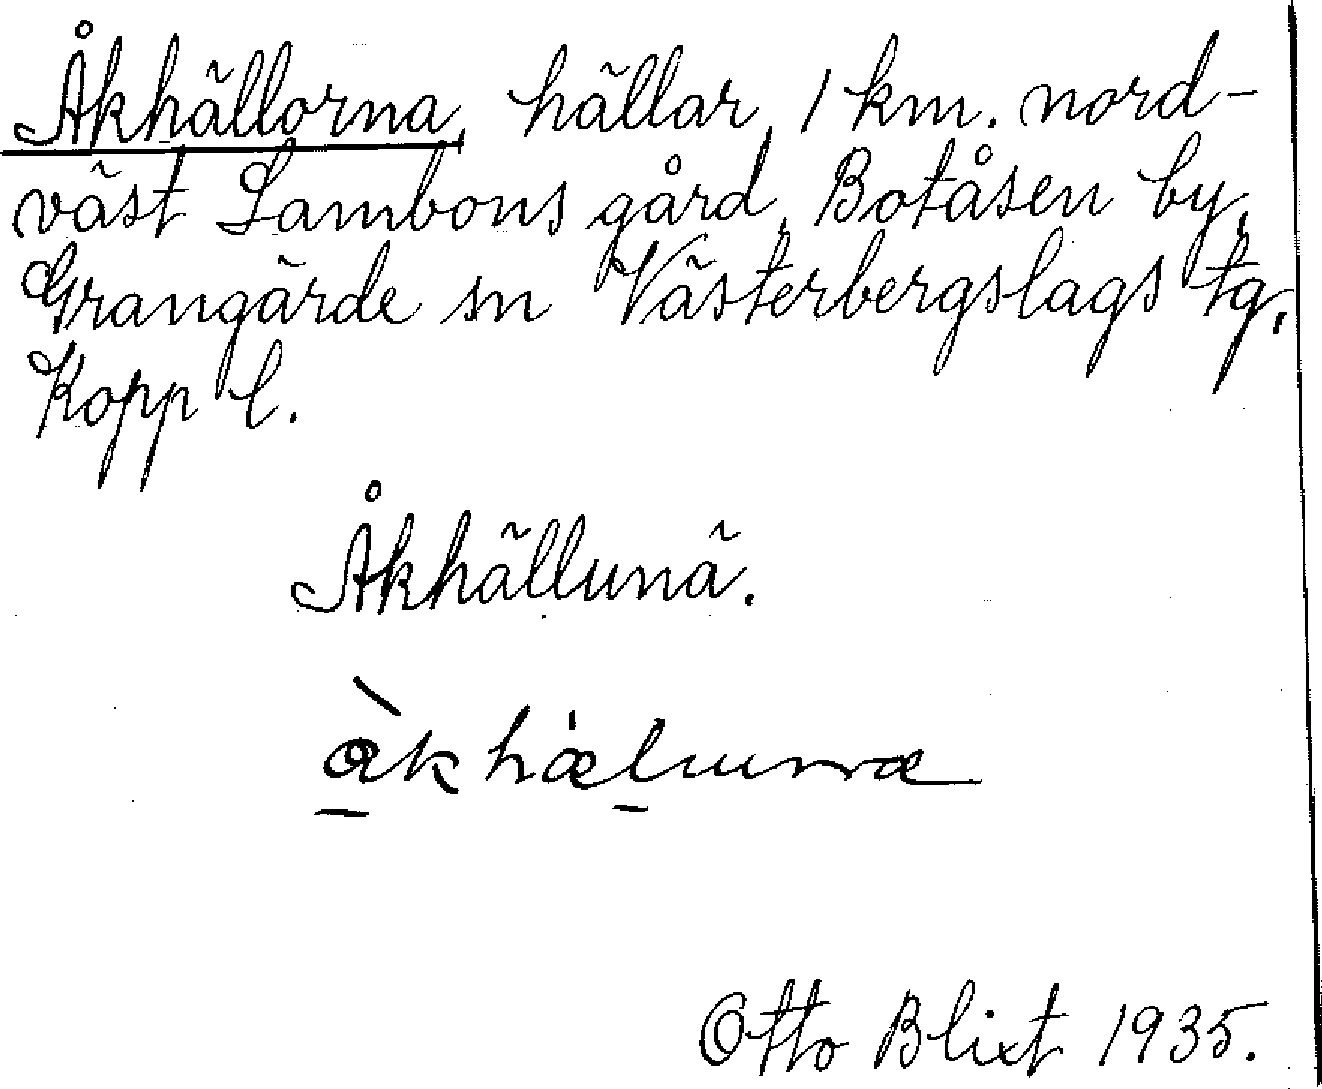 Åkhällorna, hällar, 1 km. nord-
väst Lambons gård, Botåsen by,
Grangärde sn Västerbergslags tg,
Kopp l.
Åkhällunä.
Otto Blixt 1935.